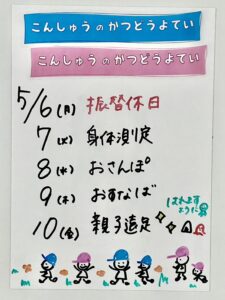 こんしゅうのかつどうよてい
こんしゅうのかつどうよてい
5/6(月) 振替休日
7(火) 身体測定
8(水) おさんぽ
9(木) おすなば
10(金) 親子遠足
はれますように